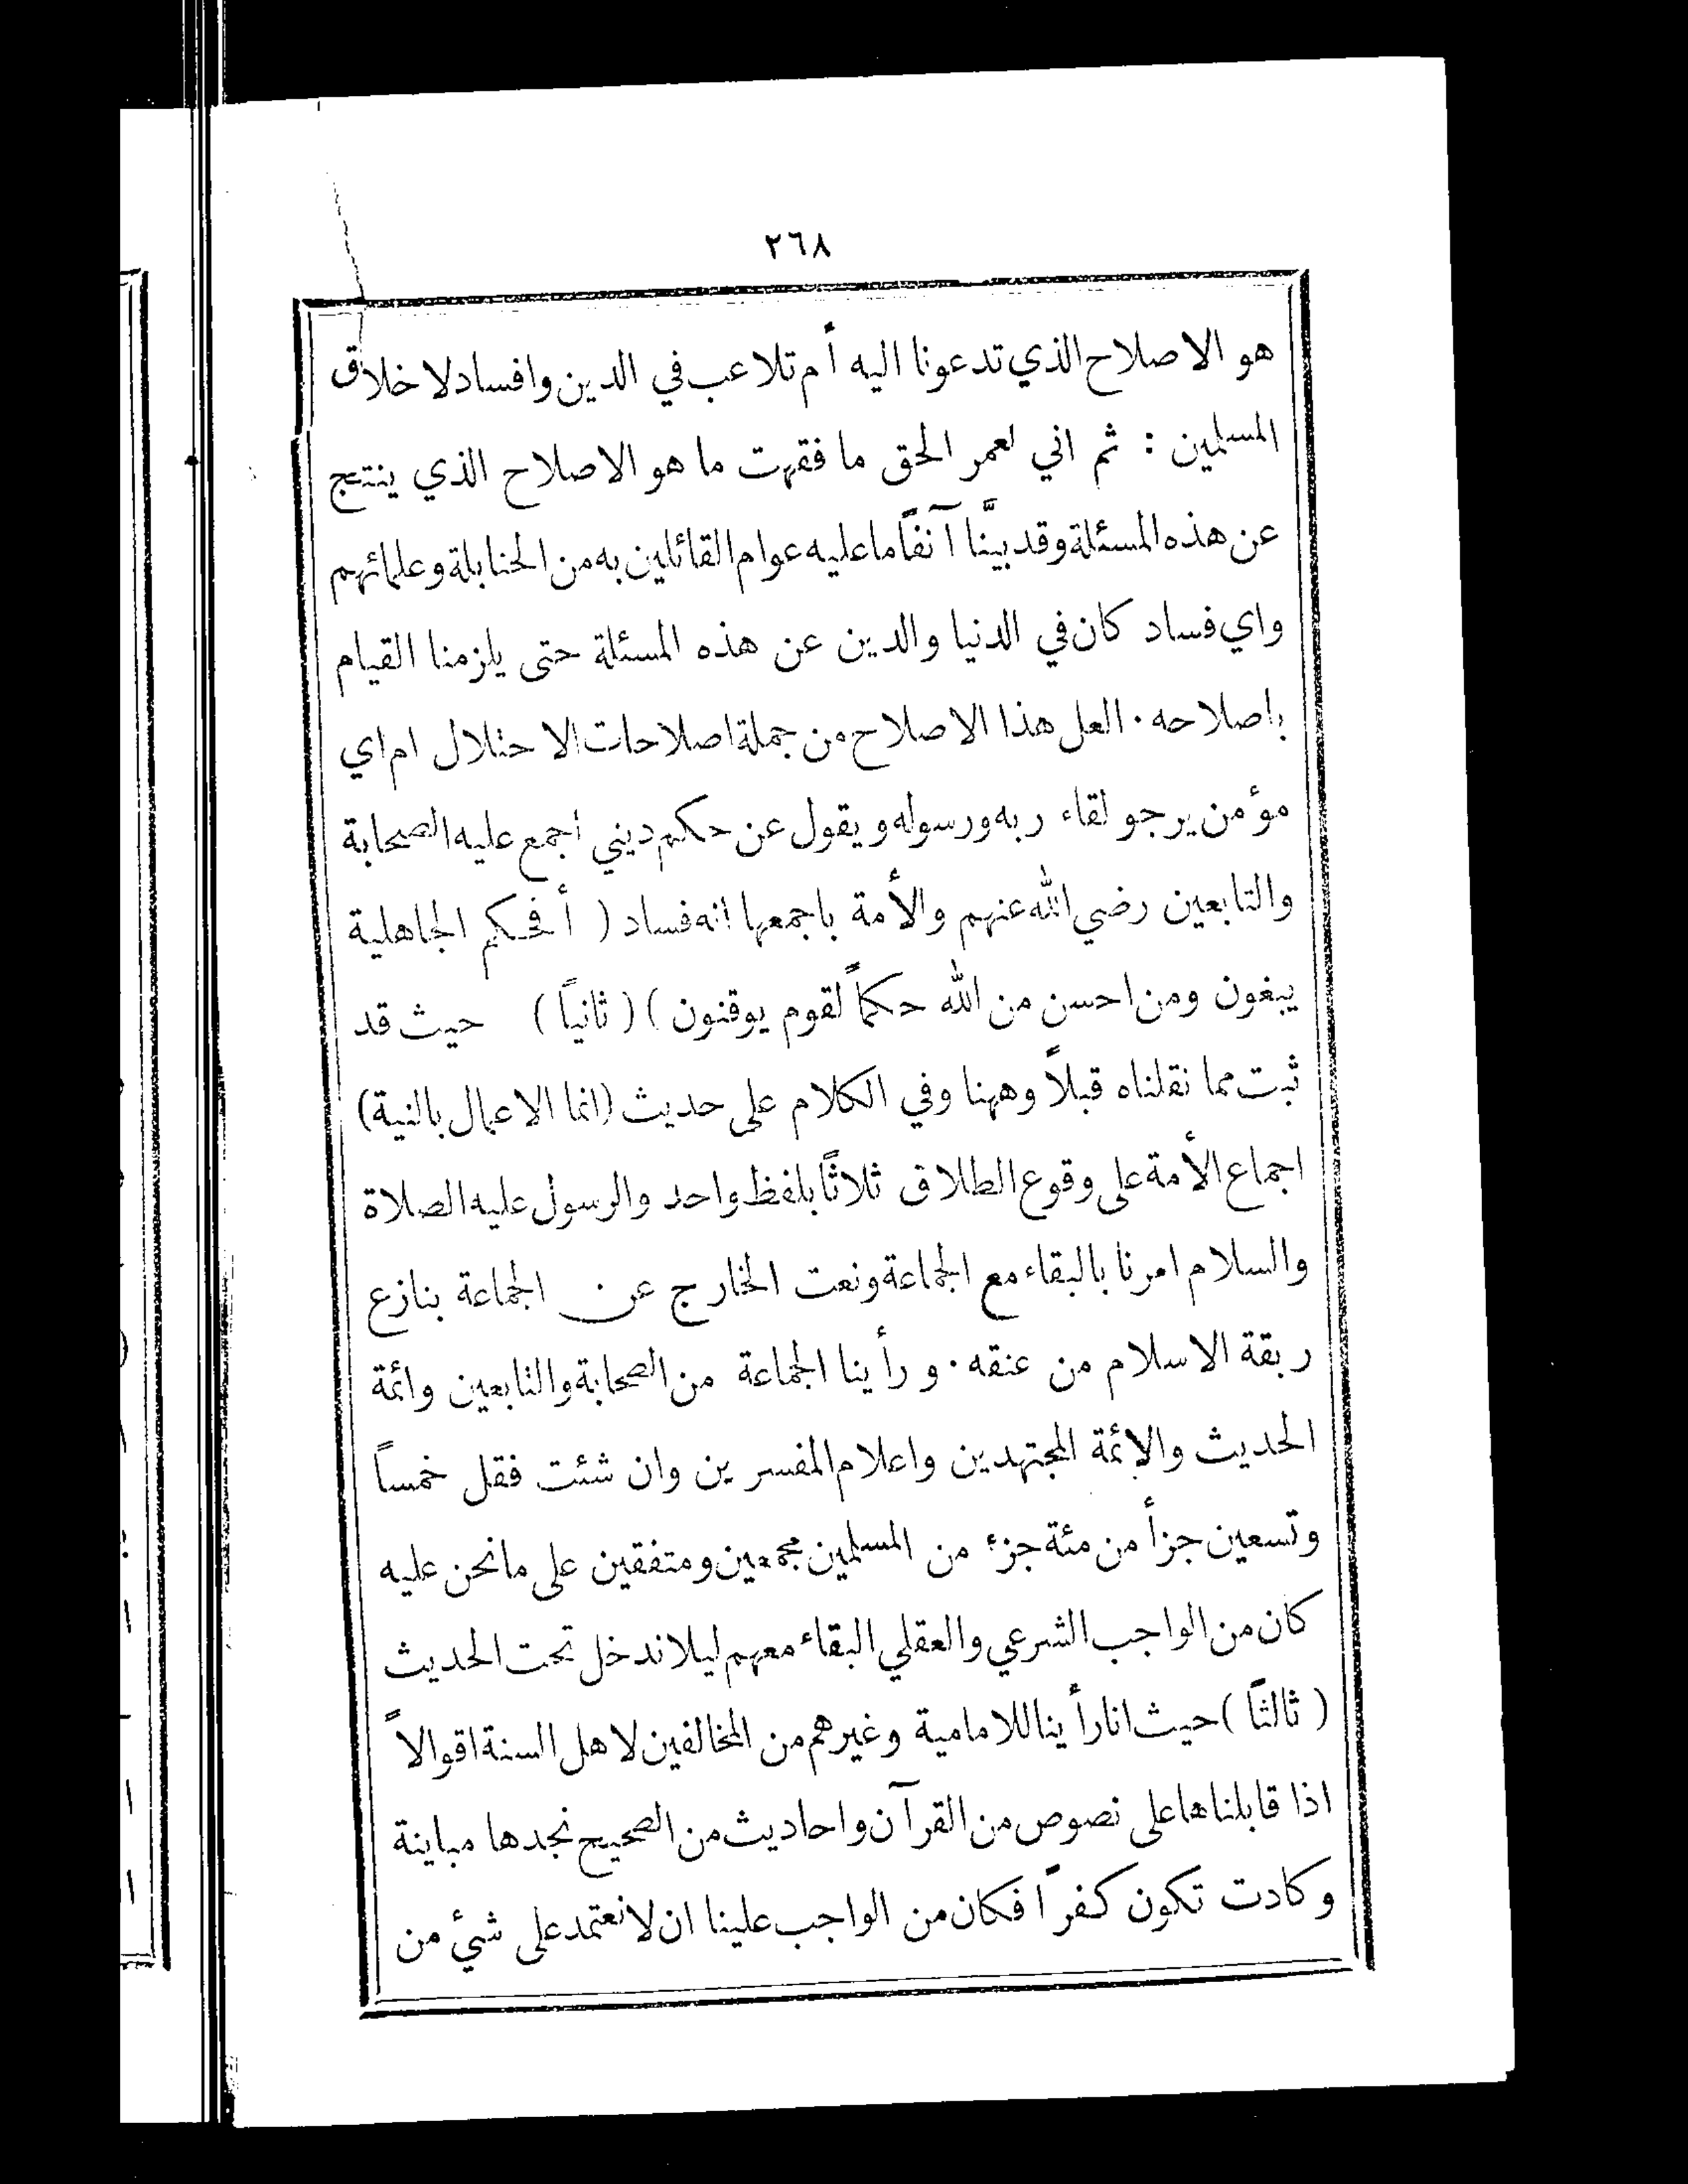 ٢٦٨
هو الاصلاح الذي تدعونا اليه أم تلاعب في الدين وافساد لاخلاق
المسلمين : ثم اني لعمر الحق ما فقهت ما هو الاصلاح الذي ينتج
عن هذه المسئلة وقد بينَّا آنفاً ما عليه عوام القائلين به من الحنابلة وعلمائهم
واي فساد كان في الدنيا والدين عن هذه المسئلة حتى يلزمنا القيام
باصلاحه · العل هذا الاصلاح من جملة اصلاحات الاحتلال ام اي
مؤمن يرجو لقاء ربه ورسوله ويقول عن حكم ديني اجمع عليه الصحابة
والتابعين رضي الله عنهم والأمة باجمعها انه فساد ( أفحكم الجاهلية
يبغون ومن احسن من الله حكماً لقوم يوقنون ) ( ثانياً ) حيث قد
ثبت مما نقلناه قبلاً وههنا وفي الكلام على حديث (انما الاعمال بالنية)
اجماع الأمة على وقوع الطلاق ثلاثاً بلفظ واحد والرسول عليه الصلاة
والسلام امرنا بالبقاء مع الجماعة ونعت الخارج عن الجماعة بنازع
ربقة الاسلام من عنقه · ورأينا الجماعة من الصحابة والتابعين وائمة
الحديث والائمة المجتهدين واعلام المفسرين وان شئت فقل خمساً
وتسعين جزأ من مئة جزء من المسلمين مجمعين ومتفقين على ما نحن عليه
كان من الواجب الشرعي والعقلي البقاء معهم ليلا ندخل تحت الحديث
( ثالثاً ) حيث انا رأينا للامامية وغيرهم من المخالفين لاهل السنة اقوالاً
اذا قابلناها على نصوص من القرآن واحاديث من الصحيح نجدها مباينة
وكادت تكون كفراً فكان من الواجب علينا ان لا نعتمد على شئ من